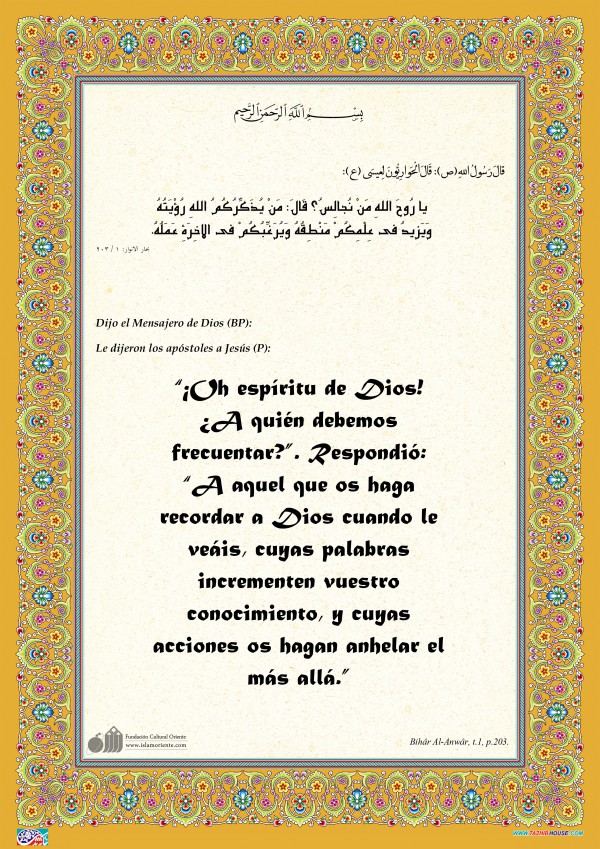 بِسْمِ اللّٰهِ الرَّحْمٰنِ الرَّحِيمِ
قالَ رَسُولُ اللهِ (ص): قَالَ الْحَوارِيُّونَ لِعِيسَى (ع):
يا رُوحَ اللهِ مَنْ نُجالِسُ؟ قالَ: مَنْ يُذَكِّرُكُمُ اللهِ رُؤْيَتُهُ
وَيَزيدُ فى عِلْمِكُمْ مَنْطِقُهُ وَيُرَغِّبُكُمْ فى الاخِرَةِ عَمَلُهُ.
بحار الانوار: ١ / ٢٠٣
Dijo el Mensajero de Dios (BP):
Le dijeron los apóstoles a Jesús (P):
“¡Oh espíritu de Dios!
¿A quién debemos
frecuentar?”. Respondió:
“A aquel que os haga
recordar a Dios cuando le
veáis, cuyas palabras
incrementen vuestro
conocimiento, y cuyas
acciones os hagan anhelar el
más allá.”
Fundación Cultural Oriente
www.islamoriente.com
Bihâr Al-Anwâr, t.1, p.203.
WWW.TAZHIBHOUSE.COM